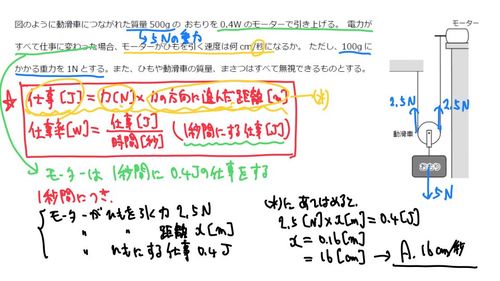 図のように動滑車につながれた質量500gの おもりを0.4Wのモーターで引き上げる。 電力が
すべて仕事に変わった場合、モーターがひもを引く速度は何cm/秒になるか。 ただし、100gに
かかる重力を1Nとする。また、ひもや動滑車の質量、まさつはすべて無視できるものとする。
→5Nの重力
モーター
☆
仕事[J]=力[N]×力の方向に進んだ距離[m] (*)
仕事率[W]=仕事[J]/時間[秒] (1秒間にする仕事[J])
2.5N
2.5N
動滑車
おもり
5N
モーターは1秒間に0.4Jの仕事をする
1秒間につき、
モーターがひもを引く力 2.5N
〃 〃 距離 x[m]
〃 ひもにする仕事 0.4J
(*)にあてはめると、
2.5[N]×x[m]=0.4[J]
x=0.16[m]
=16[cm] → A.16cm/秒